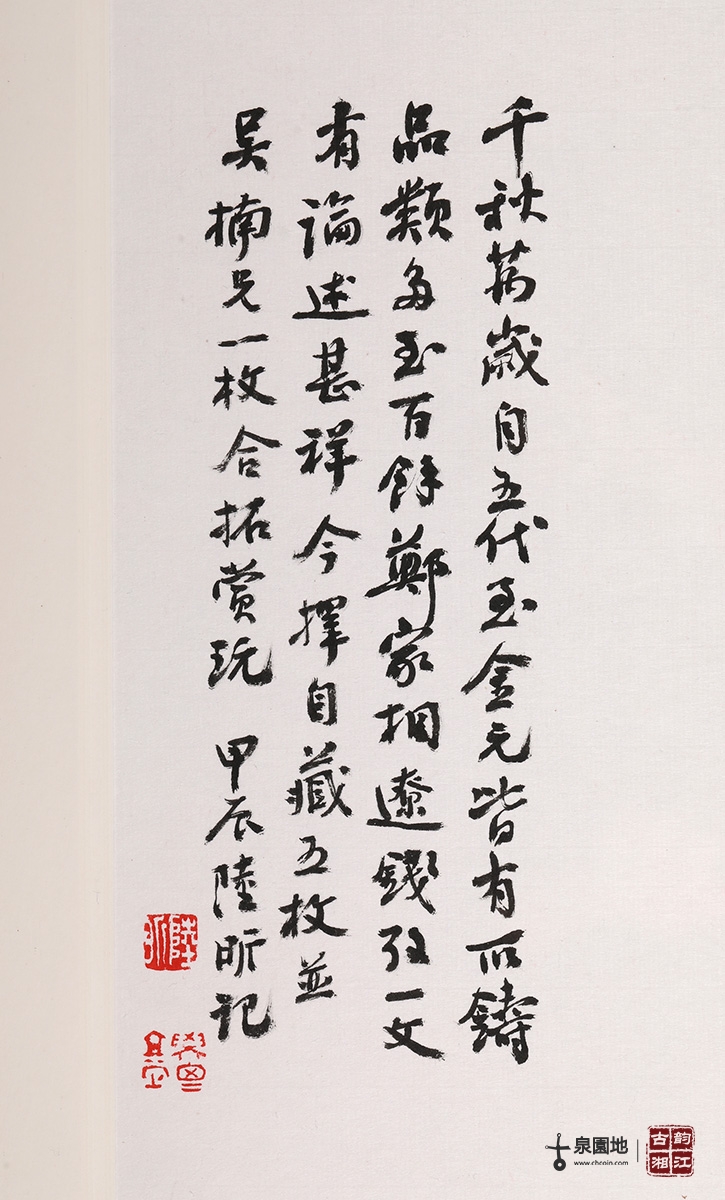 千秋萬歲自五代至金元皆有所鑄
品類多至百餘鄭家相遼錢攷一文
有論述甚祥今擇自藏五枚並
吴楠兄一枚合拓賞玩 甲辰陸昕記
泉園地
www.chcoin.com
韵江古湘